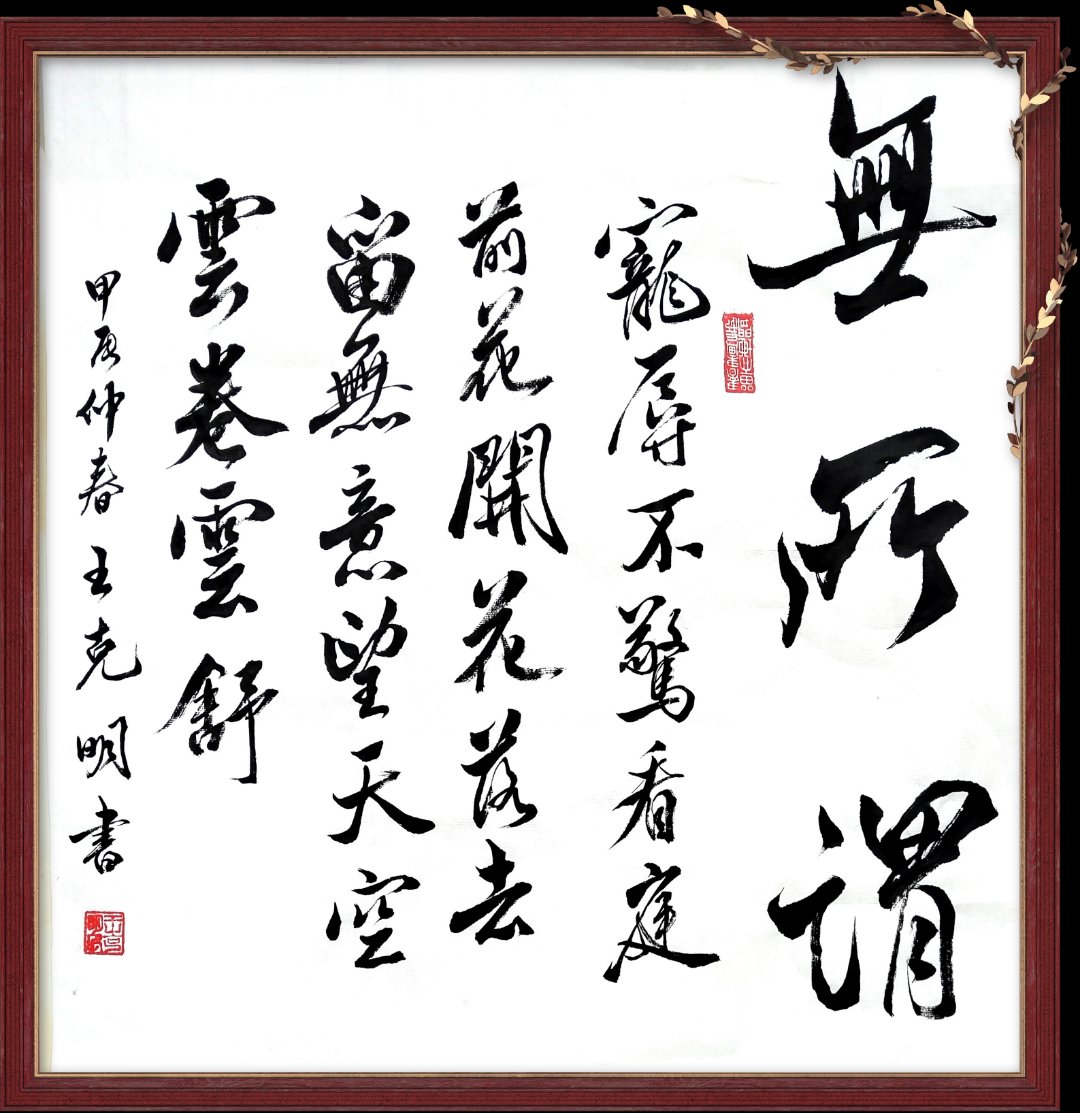 無所謂
寵辱不驚看庭
前花開花落去
留無意望天空
雲卷雲舒
甲辰仲春王克明書